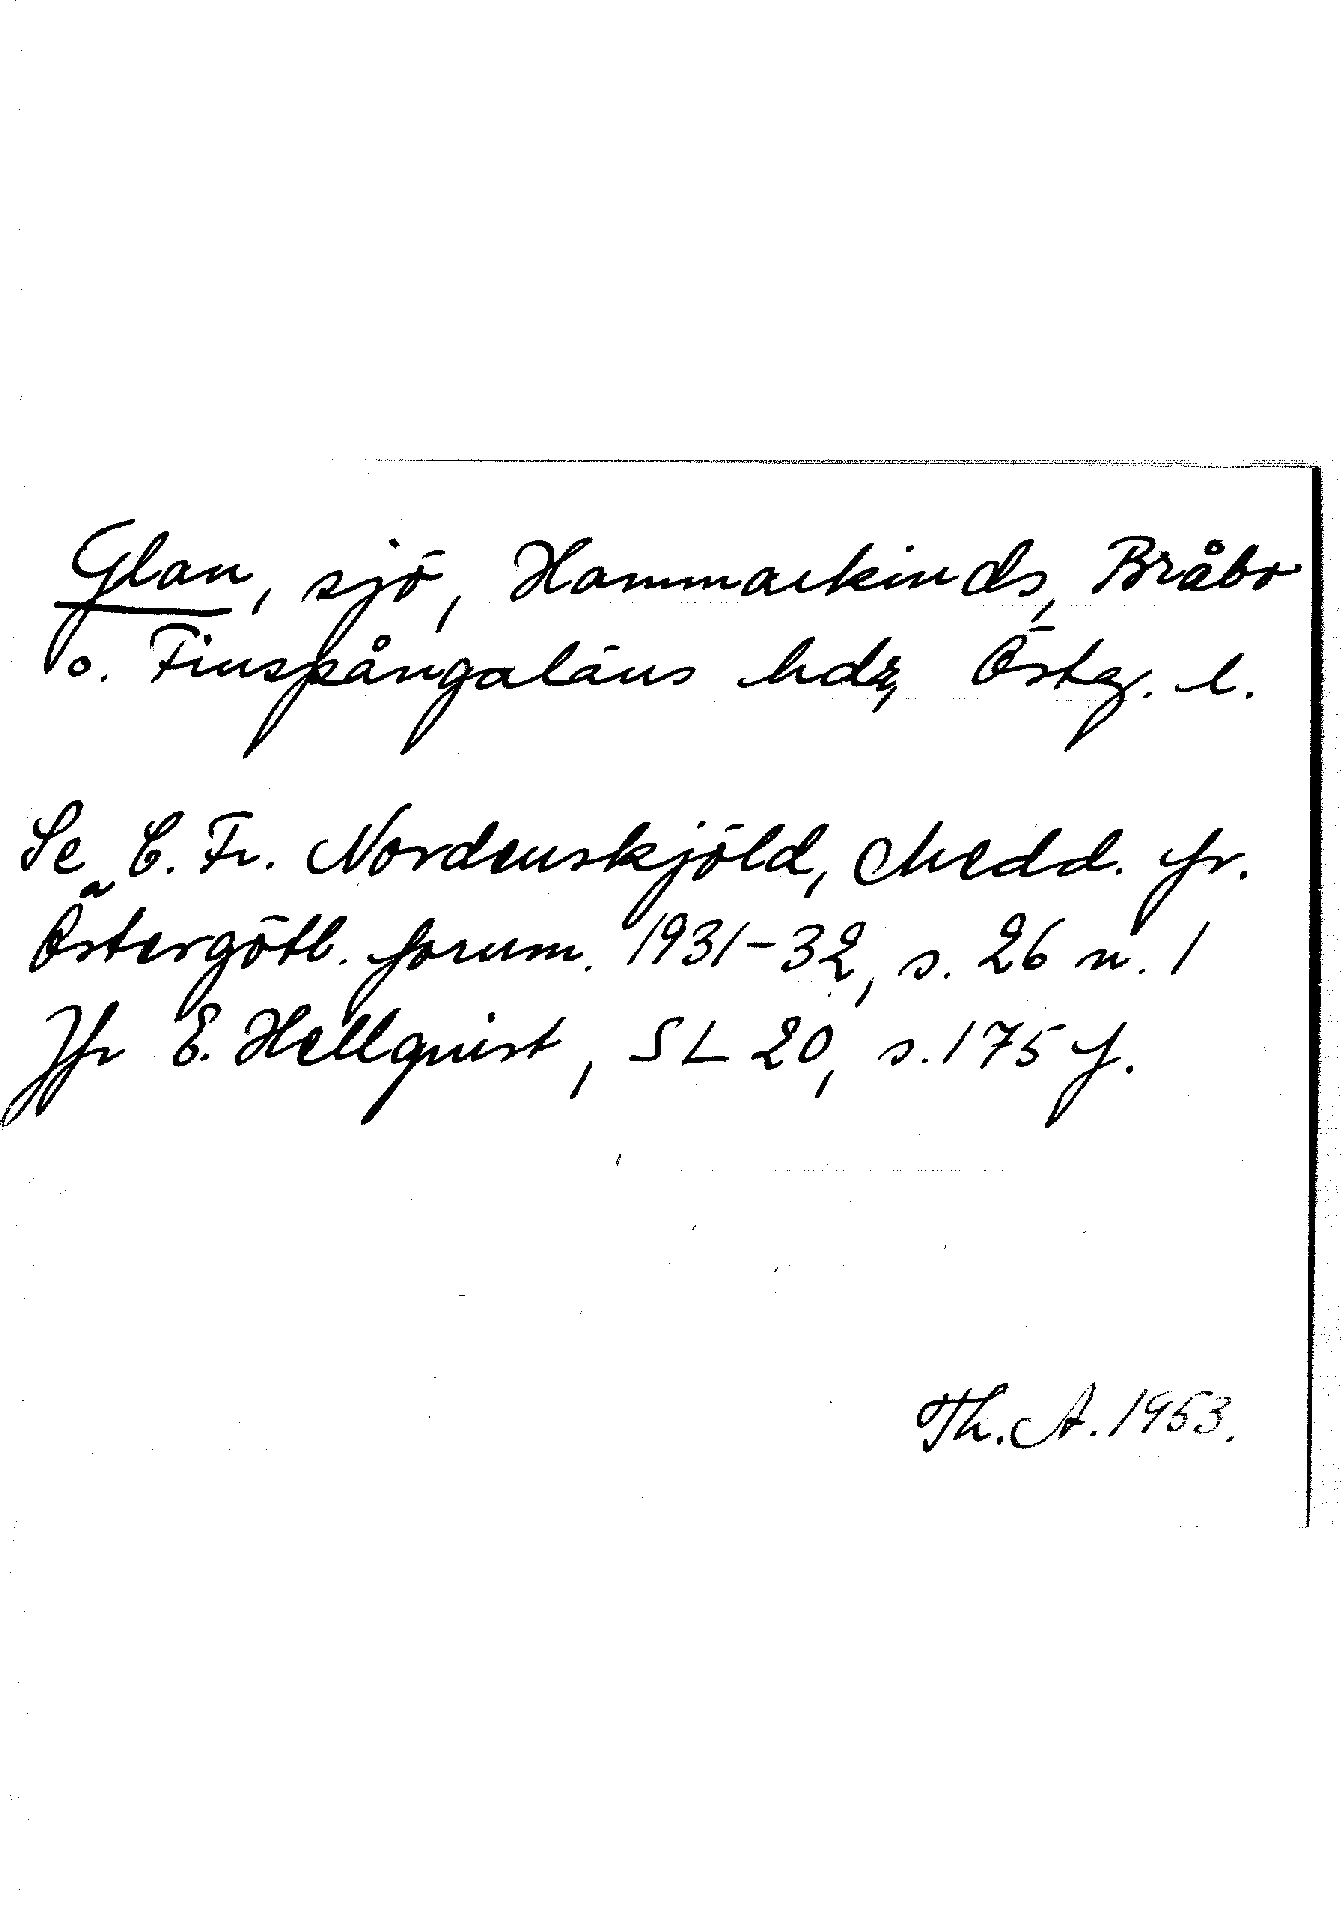 Glan, sjö, Hammarkinds, Bråbo
o. Finspångaläns hdr, Östg. l.
Se C. Fr. Nordenskjöld, Medd. fr.
Östergötl. fornm. 1931-32, s. 26 n. 1
Jfr E. Hellquist, SL 20, s. 175 f.
Th. A. 1953.